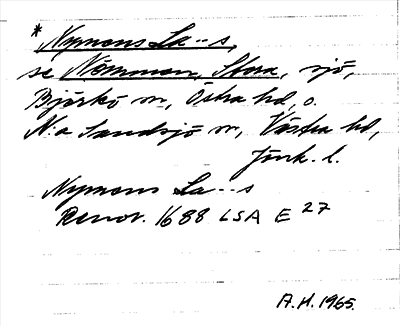 * Nymons La--s,
se Nömmen, Stora, sjö,
Björkö sn, Östra hd, o.
N:a Sandsjö sn, Västra hd,
Jönk. l.
Nymons La--s
Renov. 1688 LSA E 27
A.H. 1965.